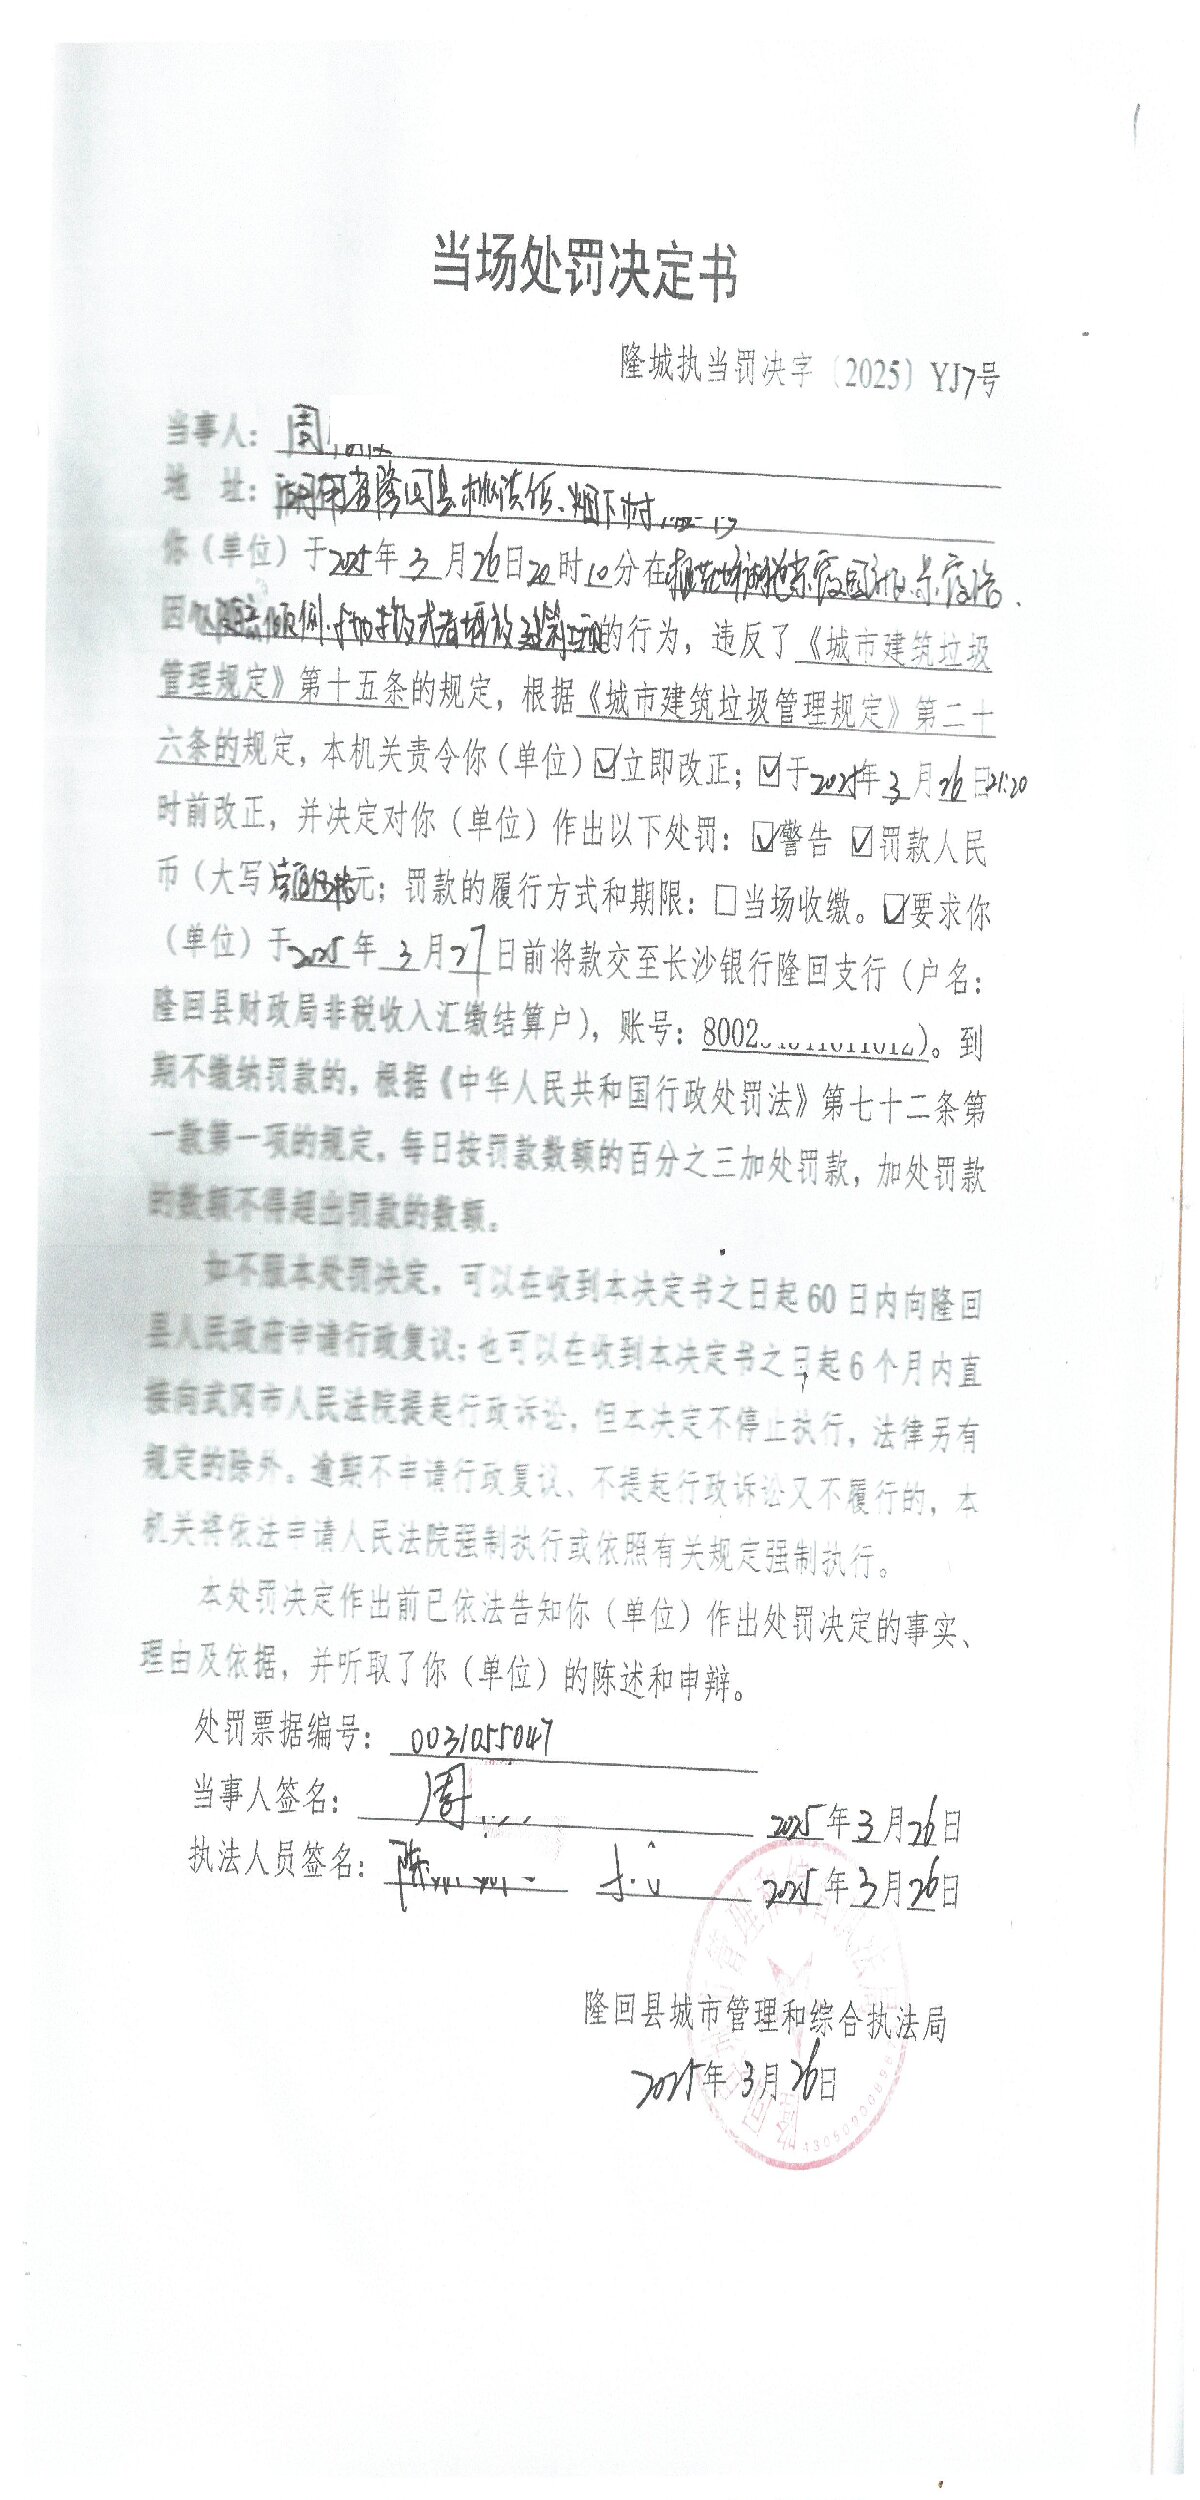 当场处罚决定书
隆城执当罚决字〔2025〕YJ7号
当事人：周
地 址：湖南省隆回县桃洪镇
你（单位）于2025年3月26日20时10分在
因随意倾倒、抛撒或者堆放建筑垃圾的行为，违反了《城市建筑垃圾
管理规定》第十五条的规定，根据《城市建筑垃圾管理规定》第二十
六条的规定，本机关责令你（单位）☑立即改正；☑于2025年3月26日21:20
时前改正，并决定对你（单位）作出以下处罚：☑警告 ☑罚款人民
币（大写）元；罚款的履行方式和期限：□当场收缴。☑要求你
（单位）于2025年3月27日前将款交至长沙银行隆回支行（户名：
隆回县财政局非税收入汇缴结算户），账号：8002）。到
期不缴纳罚款的，根据《中华人民共和国行政处罚法》第七十二条第
一款第一项的规定，每日按罚款数额的百分之三加处罚款，加处罚款
的数额不得超出罚款的数额。
如不服本处罚决定，可以在收到本决定书之日起60日内向隆回
县人民政府申请行政复议；也可以在收到本决定书之日起6个月内直
接向武冈市人民法院提起行政诉讼，但本决定不停止执行，法律另有
规定的除外。逾期不申请行政复议、不提起行政诉讼又不履行的，本
机关将依法申请人民法院强制执行或依照有关规定强制执行。
本处罚决定作出前已依法告知你（单位）作出处罚决定的事实、
理由及依据，并听取了你（单位）的陈述和申辩。
处罚票据编号：0031055047
当事人签名：周 2025年3月26日
执法人员签名：陈 2025年3月26日
隆回县城市管理和综合执法局
2025年3月26日